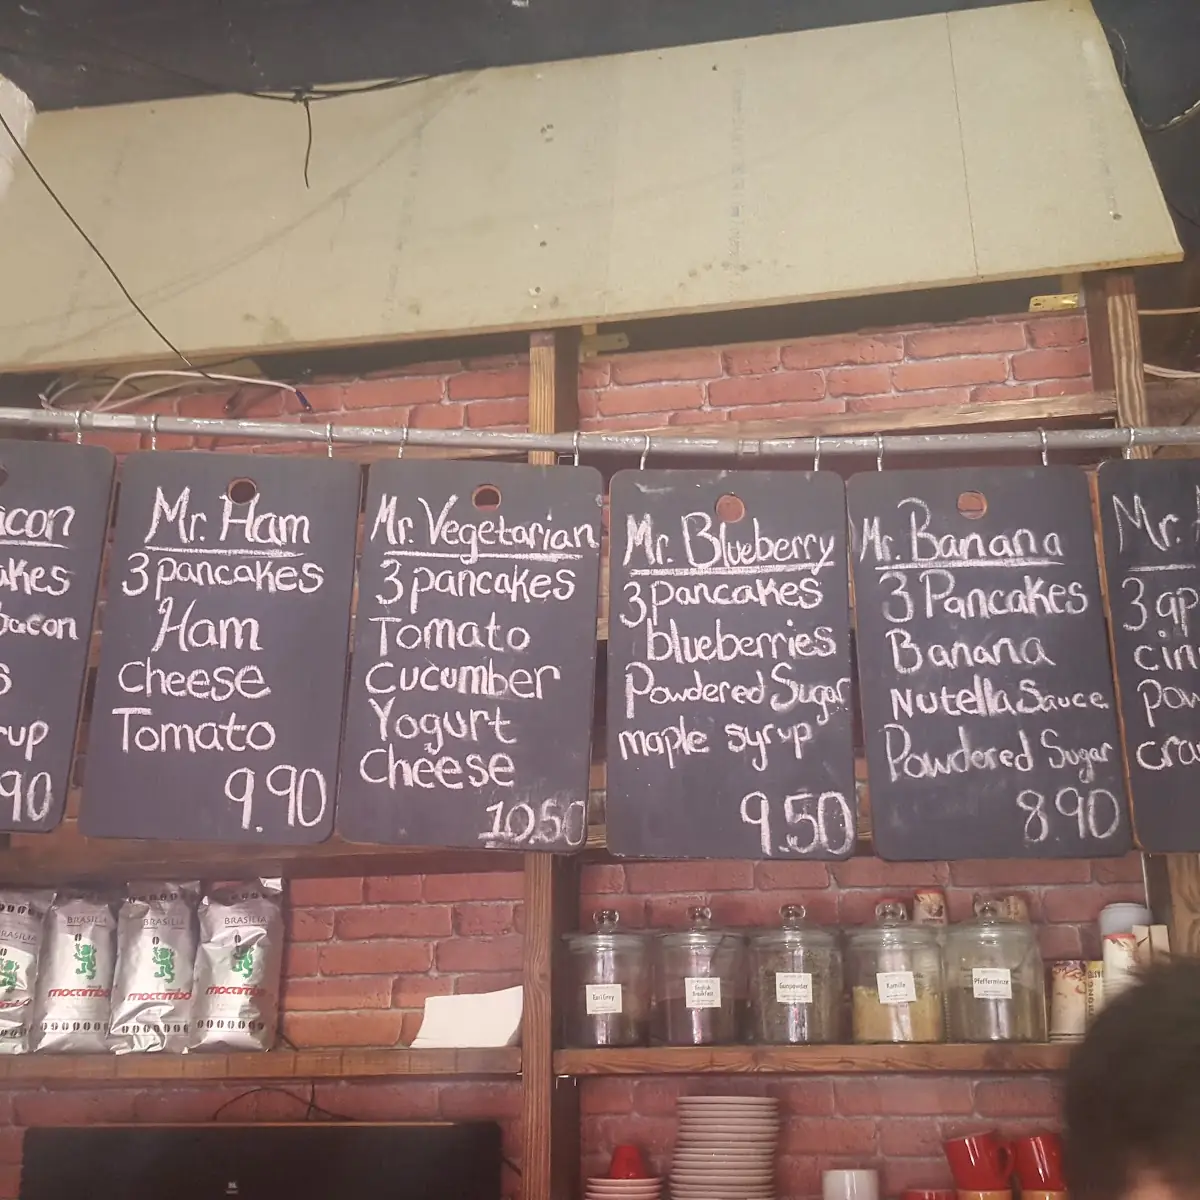 Mr. Ham
3 pancakes
Ham
Cheese
Tomato
9.90
Mr. Vegetarian
3 pancakes
Tomato
Cucumber
Yogurt
Cheese
10.50
Mr. Blueberry
3 pancakes
blueberries
Powdered Sugar
maple syrup
9.50
Mr. Banana
3 Pancakes
Banana
Nutella Sauce
Powdered Sugar
8.90
Mr.
3
90
BRASILIA
mocambo
BRASILIA
mocambo
BRASILIA
mocambo
Earl Grey
English
Breakfast
Gunpowder
Kamille
Pfefferminze